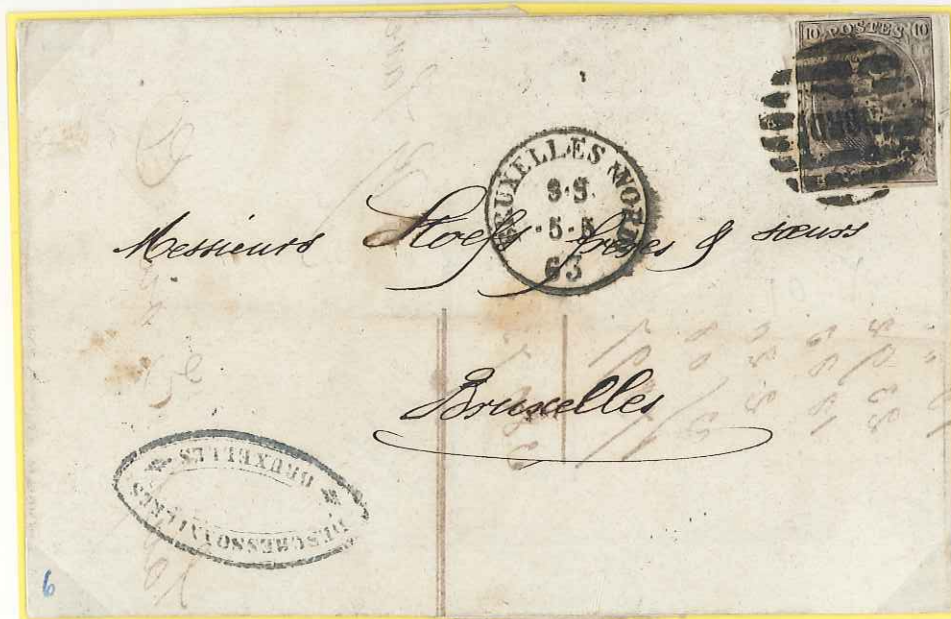 10 POSTES 10
BRUXELLES NORD
5-5
63
Messieurs Stoefs frères & sœurs
Bruxelles
DESCRESSONNIERES
BRUXELLES
6